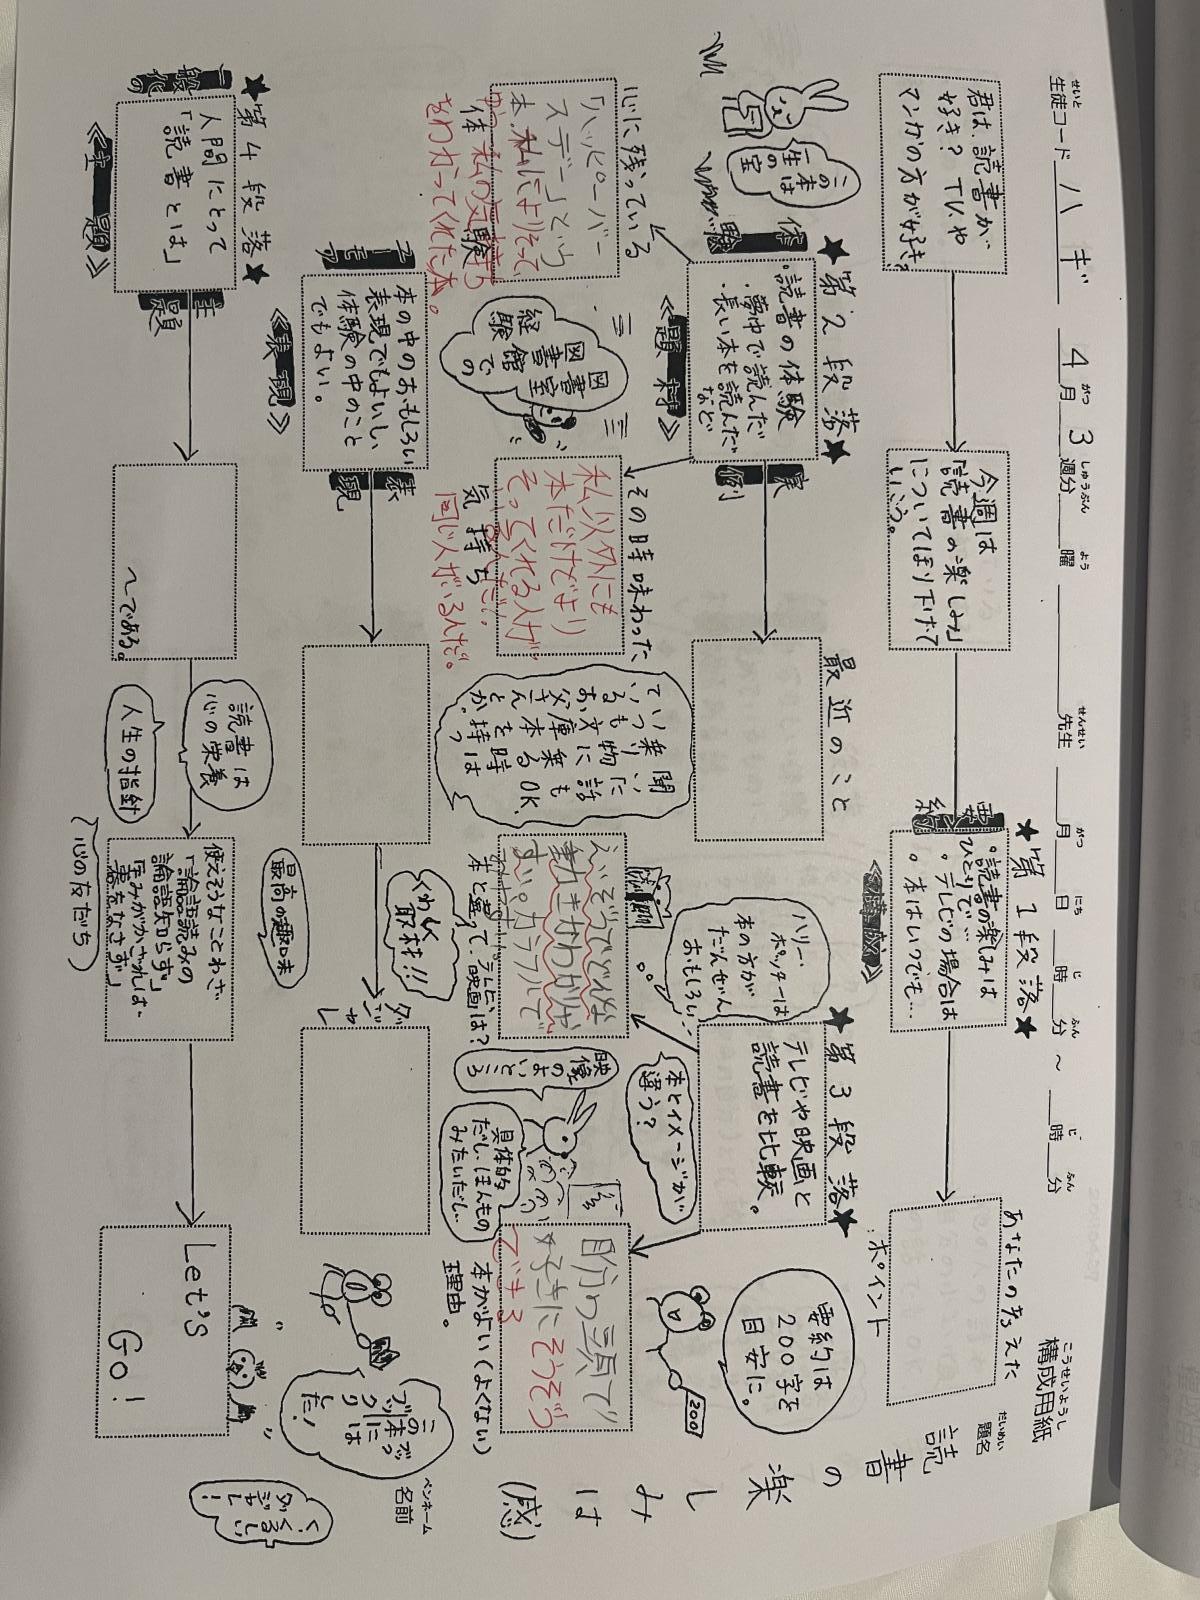 せいと
生徒コード ハギ
4月3週分 曜 先生 月 日 時 分 ～ 時 分
こうせいようし
構成用紙
だいめい
題名
読書の楽しみは(感)
ペンネーム
名前
君は、読書が
好き？TV.や
マンガの方が好き？
今週は
「読書の楽しみ」
についてほり下げて
いこう。
★第1段落★
要約
・読書の楽しみは
ひとりで…
・テレビの場合は
・本はいつでも…
《構成》
あなたの考えた
ポイント
要約は
200字を
目安に。
200
★第2段落★
体験
・読書の体験
・夢中で読んだ
・長い本を読んだ
など
《題材》
この本は
一生の
宝
心に残っている
「ハッピーバー
スデー」という
本、私によりそって
私の気持ち
をわかってくれた本。
体験
図書室
図書館での
経験
その時味わった
私以外にも
本だけどより
そってくれる人が
同じ人がいるんだ。
気持ち
実例
最近のこと
聞いた話もOK、
乗り物に乗る時は
いつも文庫本を持っ
ているお父さんとか。
★第3段落★
テレビや映画と
読書を比較。
ハリー・
ポッターは
本の方が
だんぜん
おもしろい…
本とイメージが
違う？
本と違って、テレビ、映画は？
映像
のよいところ
具体的
だし、ほんもの
みたいだし、
自分の頭で
好きにそうぞう
できる
本がよい(よくない)
理由。
ユーモア
本の中のおもしろい
表現でもよいし、
体験の中のこと
でもよい。
《表現》
表現
くわしく
取材!!
最高の趣味
ダジャレ
この本には
ブックリ
した！
く、くるしい
ダジャレ！
★第4段落★
一般化の
人間にとって
「読書とは」
《主題》
主題
～である。
読書は
心の栄養
人生の指針
(心の友だち)
使えそうなことわざ
「論語読みの
論語知らず」
Let's
GO!